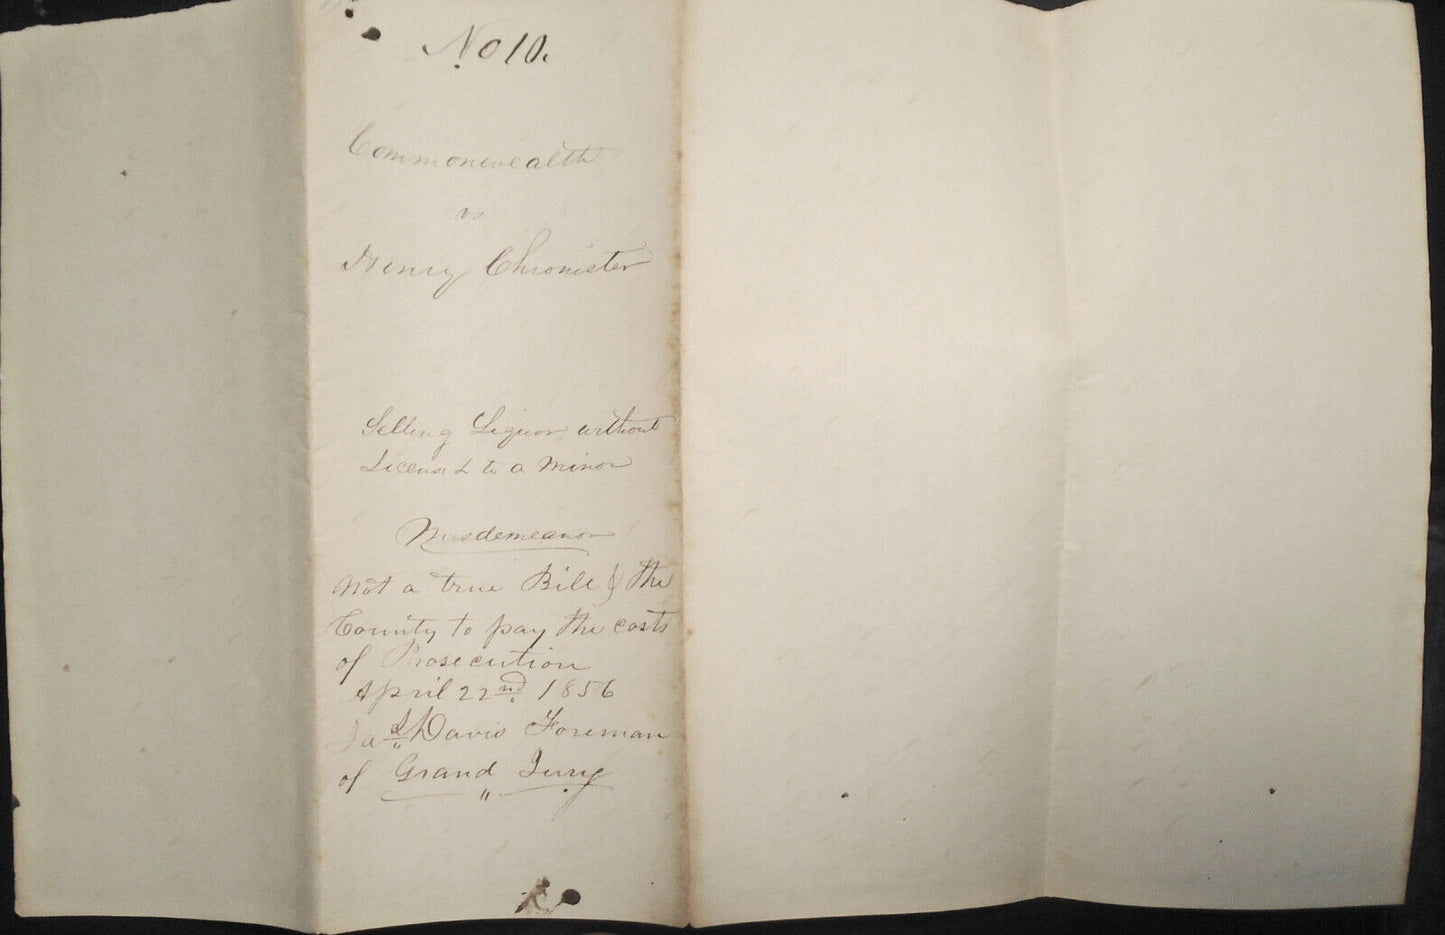 No 10.
Commonwealth
vs
Henry Chronister
Selling Liquor without
License & to a minor
Misdemeanor
Not a true Bill & the
County to pay the costs
of Prosecution
April 22nd 1856
Jas Davis Foreman
of Grand Jury